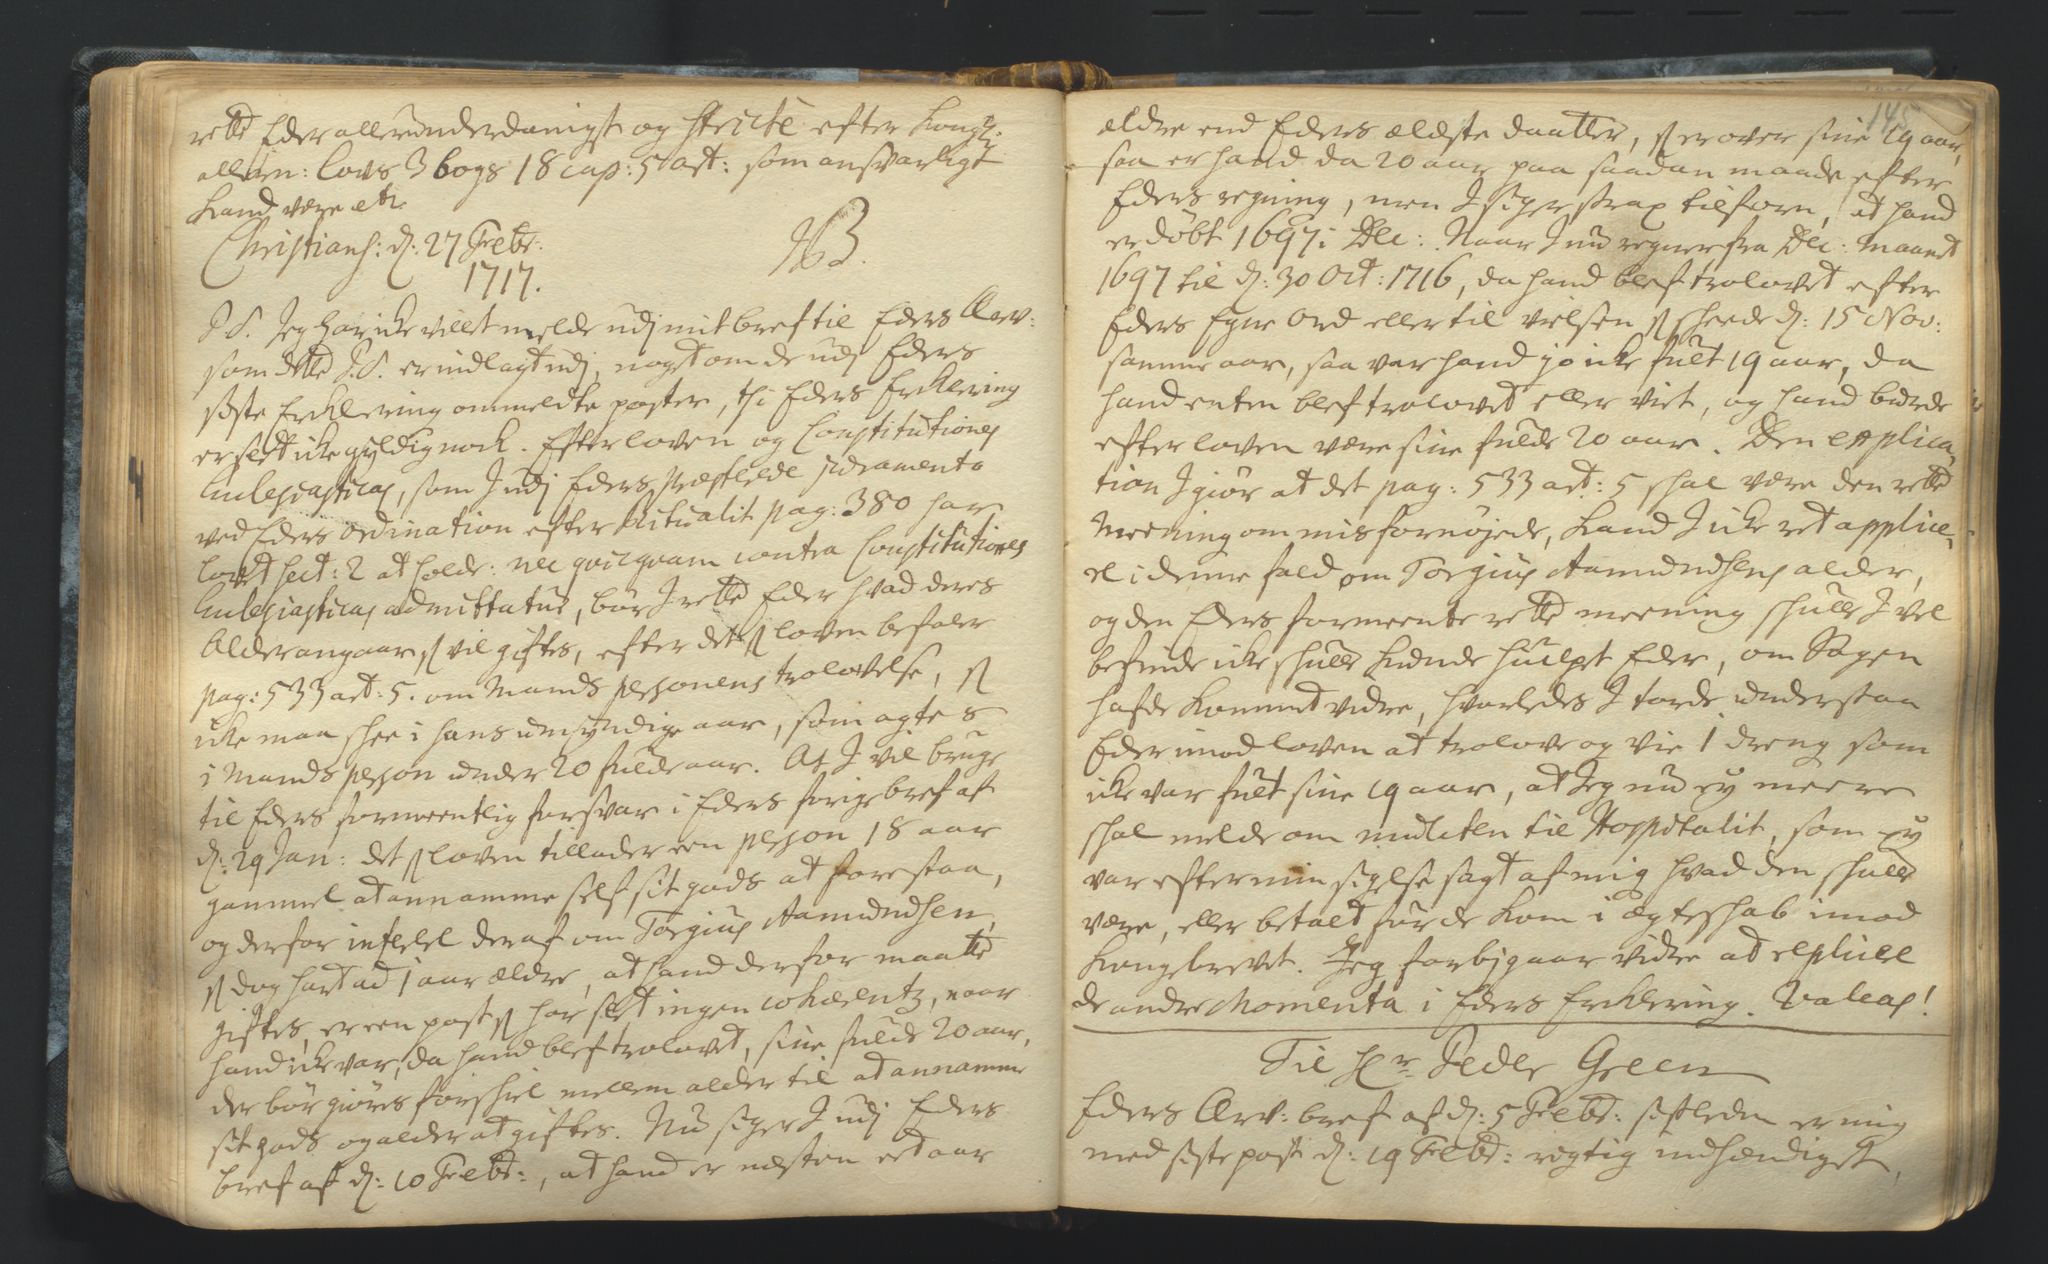 rette Eder allerunderdanigst og stricte efter Kongl:
allern: lovs 3 bogs 18 cap: 5 art: som ansvarligt
kand være etc.
Christians: d: 27 Febr:
1717.
JB.
P.S. Jeg har icke villet melde udj mit bref til Eders Ærv:
som dette P.S. er indlagt udj, noget om de udj Eders
sidste Erklering ommeldte poster, thi Eders Erklering
er slet icke gyldig nock. Efter loven og Constitutiones
Ecclesiasticas, som I udj Eders præstelede sacramento
ved Eders ordination efter Ritualit pag: 380 har
lovet sect: 2 at holde: nec quicquam contra Constitutiones
Ecclesiasticas admittatur, bør I rette Eder hvad deres
Alder angaar, som vil giftes, efter det som loven befaler
pag: 533 art: 5. om Mands personens trolovelse, som
icke maa skee i hans umyndige aar, som agtes
i Mands person under 20 fulde aar. At I vil bruge
til Eders formeentlig forsvar i Eders forige bref af
d: 29 Jan: det som loven tillader een person 18 aar
gammel at annamme self sit gods at forestaa,
og derfor inferel deraf om Torgius Aamundsen,
som dog hart ad 1 aar ældre, at hand derfor maatte
giftes, er een post som har slet ingen cohærentz, naar
hand icke var, da hand blef trolovet, sine fulde 20 aar,
der bør giøres forskiel mellem alder til at annamme
sit gods og alder at giftes. Nu siger I udj Eders
bref af d: 10 Febr:, at hand er næsten et aar
145
eldre end Eders ældste daatter, som er over sine 19 aar,
saa er hand da 20 aar paa saadan maade efter
Eders regning, men I siger strax tilforn, at hand
er døbt 1697 i Dec: Naar I nu regner fra Dec: maanet
1697 til d: 30 Oct: 1716, da hand blef trolovet efter
Eders Egne ord eller til vielsen som skeede d: 15 Nov:
samme aar, saa var hand jo icke fult 19 aar, da
hand enten blef trolovet eller viet, og hand burde
efter loven være sine fulde 20 aar. Den explica,,
tion I giør at det pag: 533 art: 5 skal være den rette
Meening om misfornøjede, kand I icke ret applice,,
re i denne fald om Torgius Aamundsens alder,
og den Eders formeente rette meening skulle I vel
befinde icke skulle kunde hulpet Eder, om Sagen
hafde kommet vidre, hvorledes I torde understaa
Eder imod loven at trolove og vie 1 dreng som
icke var fult sine 19 aar, at Jeg nu ey meere
skal melde om mulcten til Hospitalit, som ey
var efter min sigelse sagt af mig hvad den skulle
være, eller betalt før de kom i ægteskab imod
Kongebrevet. Jeg forbjgaar vidre at explicere
de andre Momenta i Eders Erklering. Valeas!
Til Hr Peder Green
Eders Ærv: bref af d: 5 Febr: sistleden er mig
med sidste post d: 19 Febr: rigtig indhændiget,